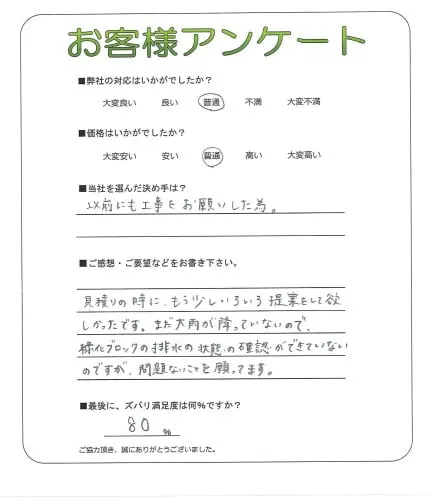 お客様アンケート
■弊社の対応はいかがでしたか？
大変良い 良い 普通 不満 大変不満
■価格はいかがでしたか？
大変安い 安い 普通 高い 大変高い
■当社を選んだ決め手は？
以前にも工事をお願いした為。
■ご感想・ご要望などをお書き下さい。
見積りの時に、もう少しいろいろ提案をして欲
しかったです。まだ大雨が降っていないので、
緑化ブロックの排水の状態の確認ができていない
のですが、問題ないことを願ってます。
■最後に、ズバリ満足度は何%ですか？
80 %
ご協力頂き、誠にありがとうございました。